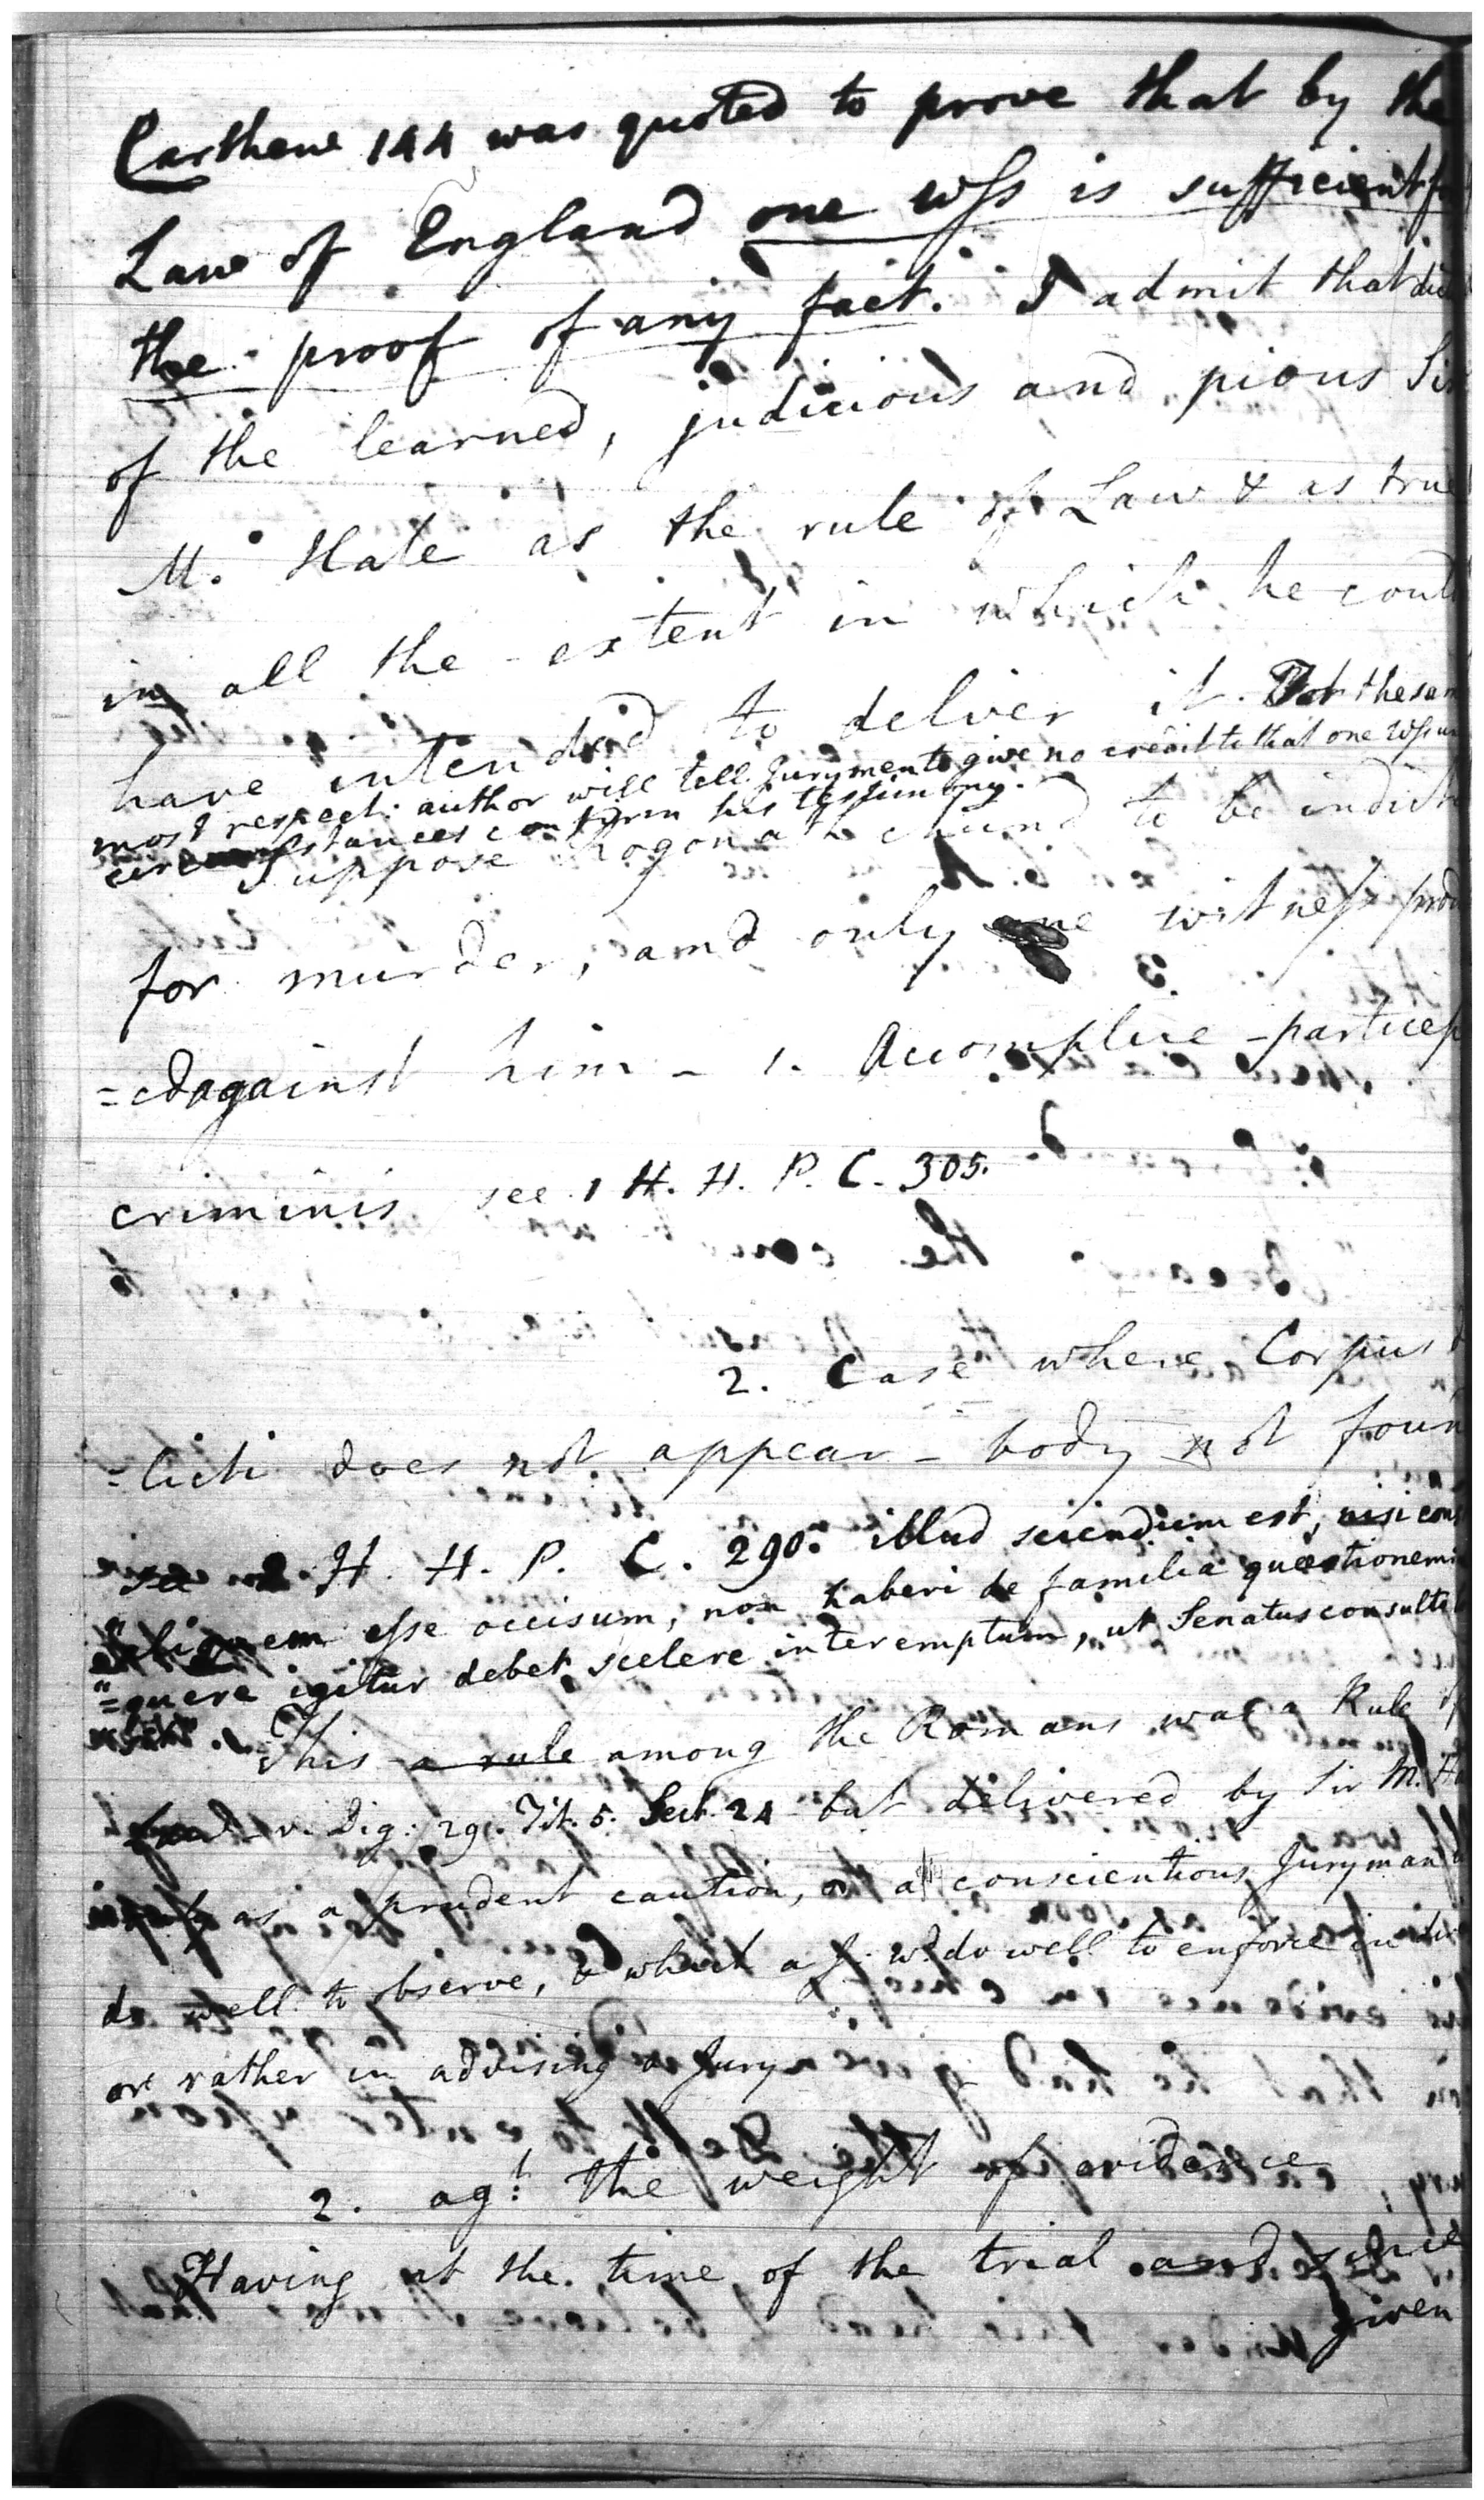 Carthew 144 was quoted to prove that by the
Law of England one wss is sufficient for
the proof of any fact. I admit that dict
of the learned, judicious and pious Sir
M. Hale as the rule of Law & as true
in all the extent in which he could
have intended to deliver it. Yet the same
most respect: author will tell Jurymen to give no credit to that one Wss un
circumstances confirm his testimony.
Suppose Rogonath chund to be indicte
for murder, and only one witness produ
=ed against him - 1. Accomplice - particep
criminis see 1 H. H. P. C. 305.
2. Case where Corpus d
=licti does not appear - body not foun
see 2. H. H. P. C. 290. illud sciendum est, nisi cons
aliquem esse occisum, non haberi de familia quæstionem
"=quere igitur debet scelere interemptum, ut Senatus consulto
This a rule among the Romans was a Rule of
v. Dig: 29. Tit. 5. Sect. 24 but delivered by Sir M. Ha
as a prudent caution, a conscientious Juryman
do well to observe, & which a J. wd. do well to enforce in
or rather in advising a Jury
2. agt. the weight of evidence
Having at the time of the trial and since
given